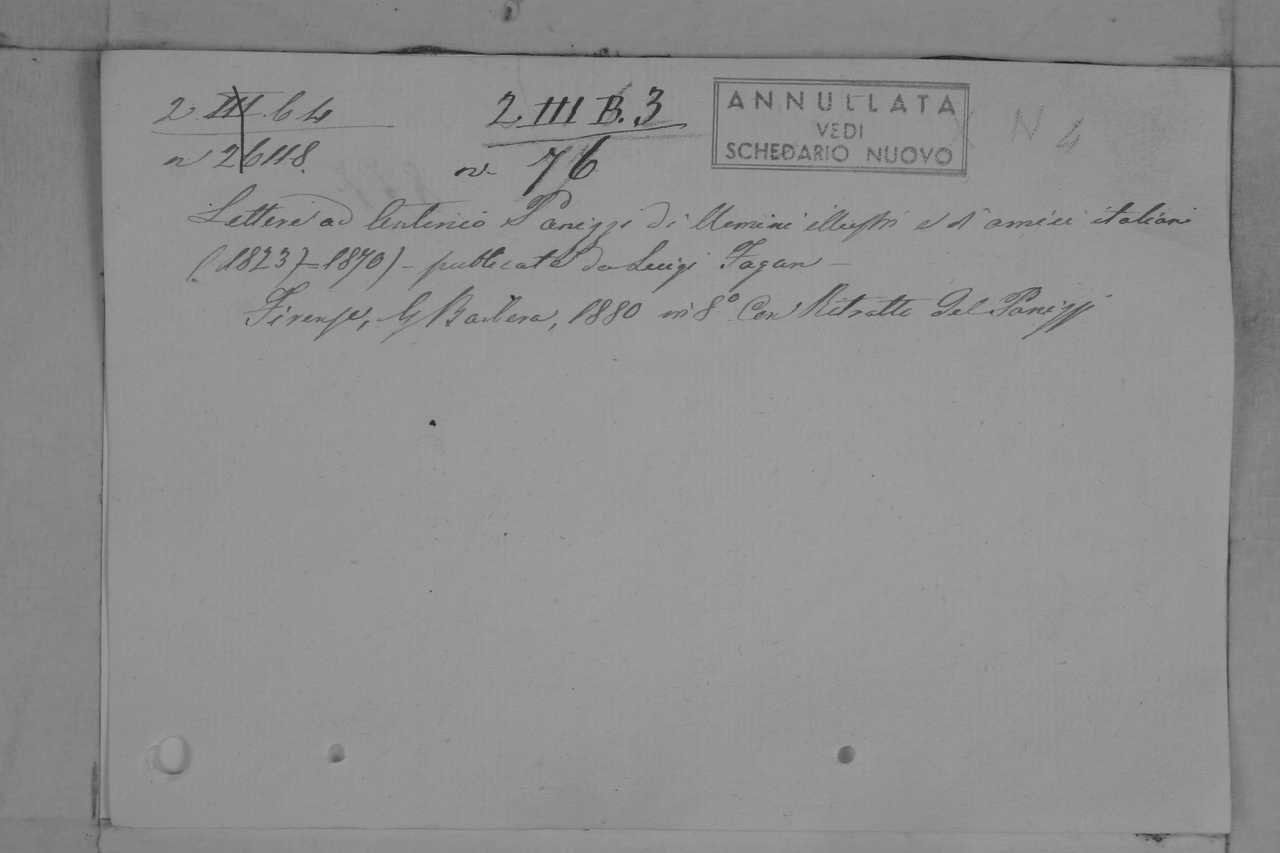 2. III. b 4
n 26118.
2 III B. 3
n. 76
ANNULLATA
VEDI
SCHEDARIO NUOVO
N 4
Lettere ad Antonio Panizzi di Uomini illustri e di amici italiani
(1823-1870) - publicate da Luigi Fagan -
Firenze, G Barbera, 1880 in 8° Con Ritratto del Panizzi